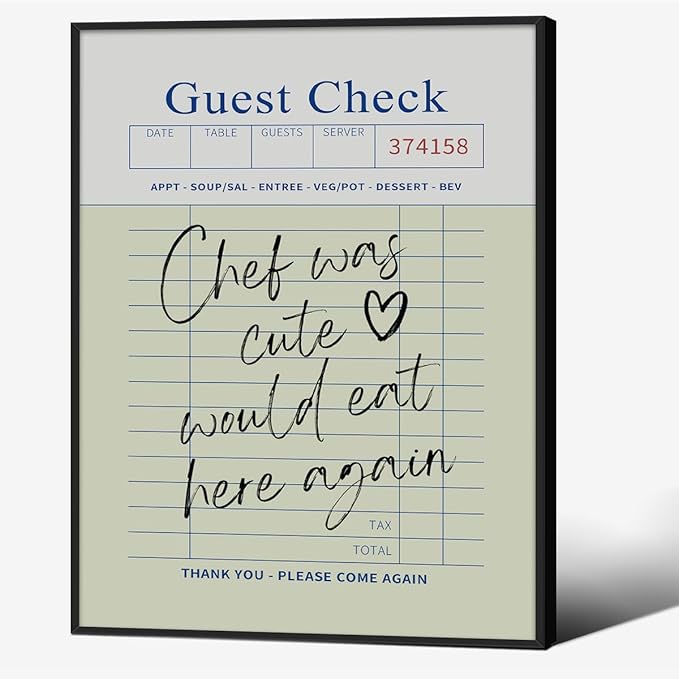 Guest Check
DATE TABLE GUESTS SERVER 374158
APPT - SOUP/SAL - ENTREE - VEG/POT - DESSERT - BEV
Chef was
cute ♡
would eat
here again
TAX
TOTAL
THANK YOU - PLEASE COME AGAIN